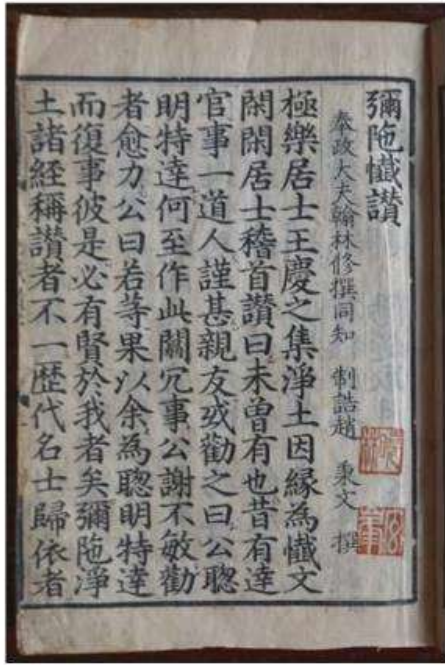 彌陁懺讃
奉政大夫翰林修撰同知 制誥趙 秉文 撰
極樂居士王慶之集淨土因緣為懺文
閑閑居士稽首讃曰未曾有也昔有達
官事一道人謹甚親友或勸之曰公聦
明特達何至作此闒冗事公謝不敏勸
者愈力公曰若等果以余為聦明特達
而復事彼是必有賢於我者矣彌陁淨
土諸經稱讃者不一歴代名士歸依者